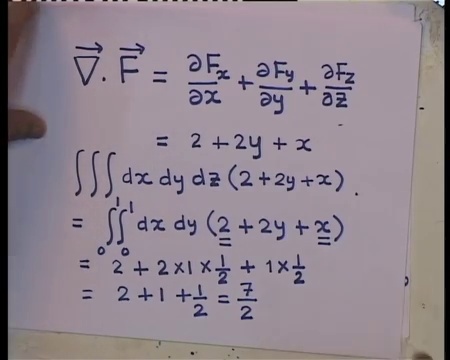 ∇⃗ . F⃗ = ∂Fx/∂x + ∂Fy/∂y + ∂Fz/∂z
= 2 + 2y + x
∫∫∫ dx dy dz (2 + 2y + x) .
= ∫₀¹∫₀¹ dx dy (2 + 2y + x)
= 2 + 2×1×1/2 + 1×1/2
= 2 + 1 + 1/2 = 7/2